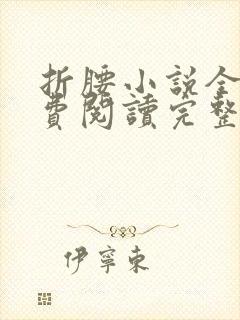 折腰小說全
費閱讀完整
伊寧東